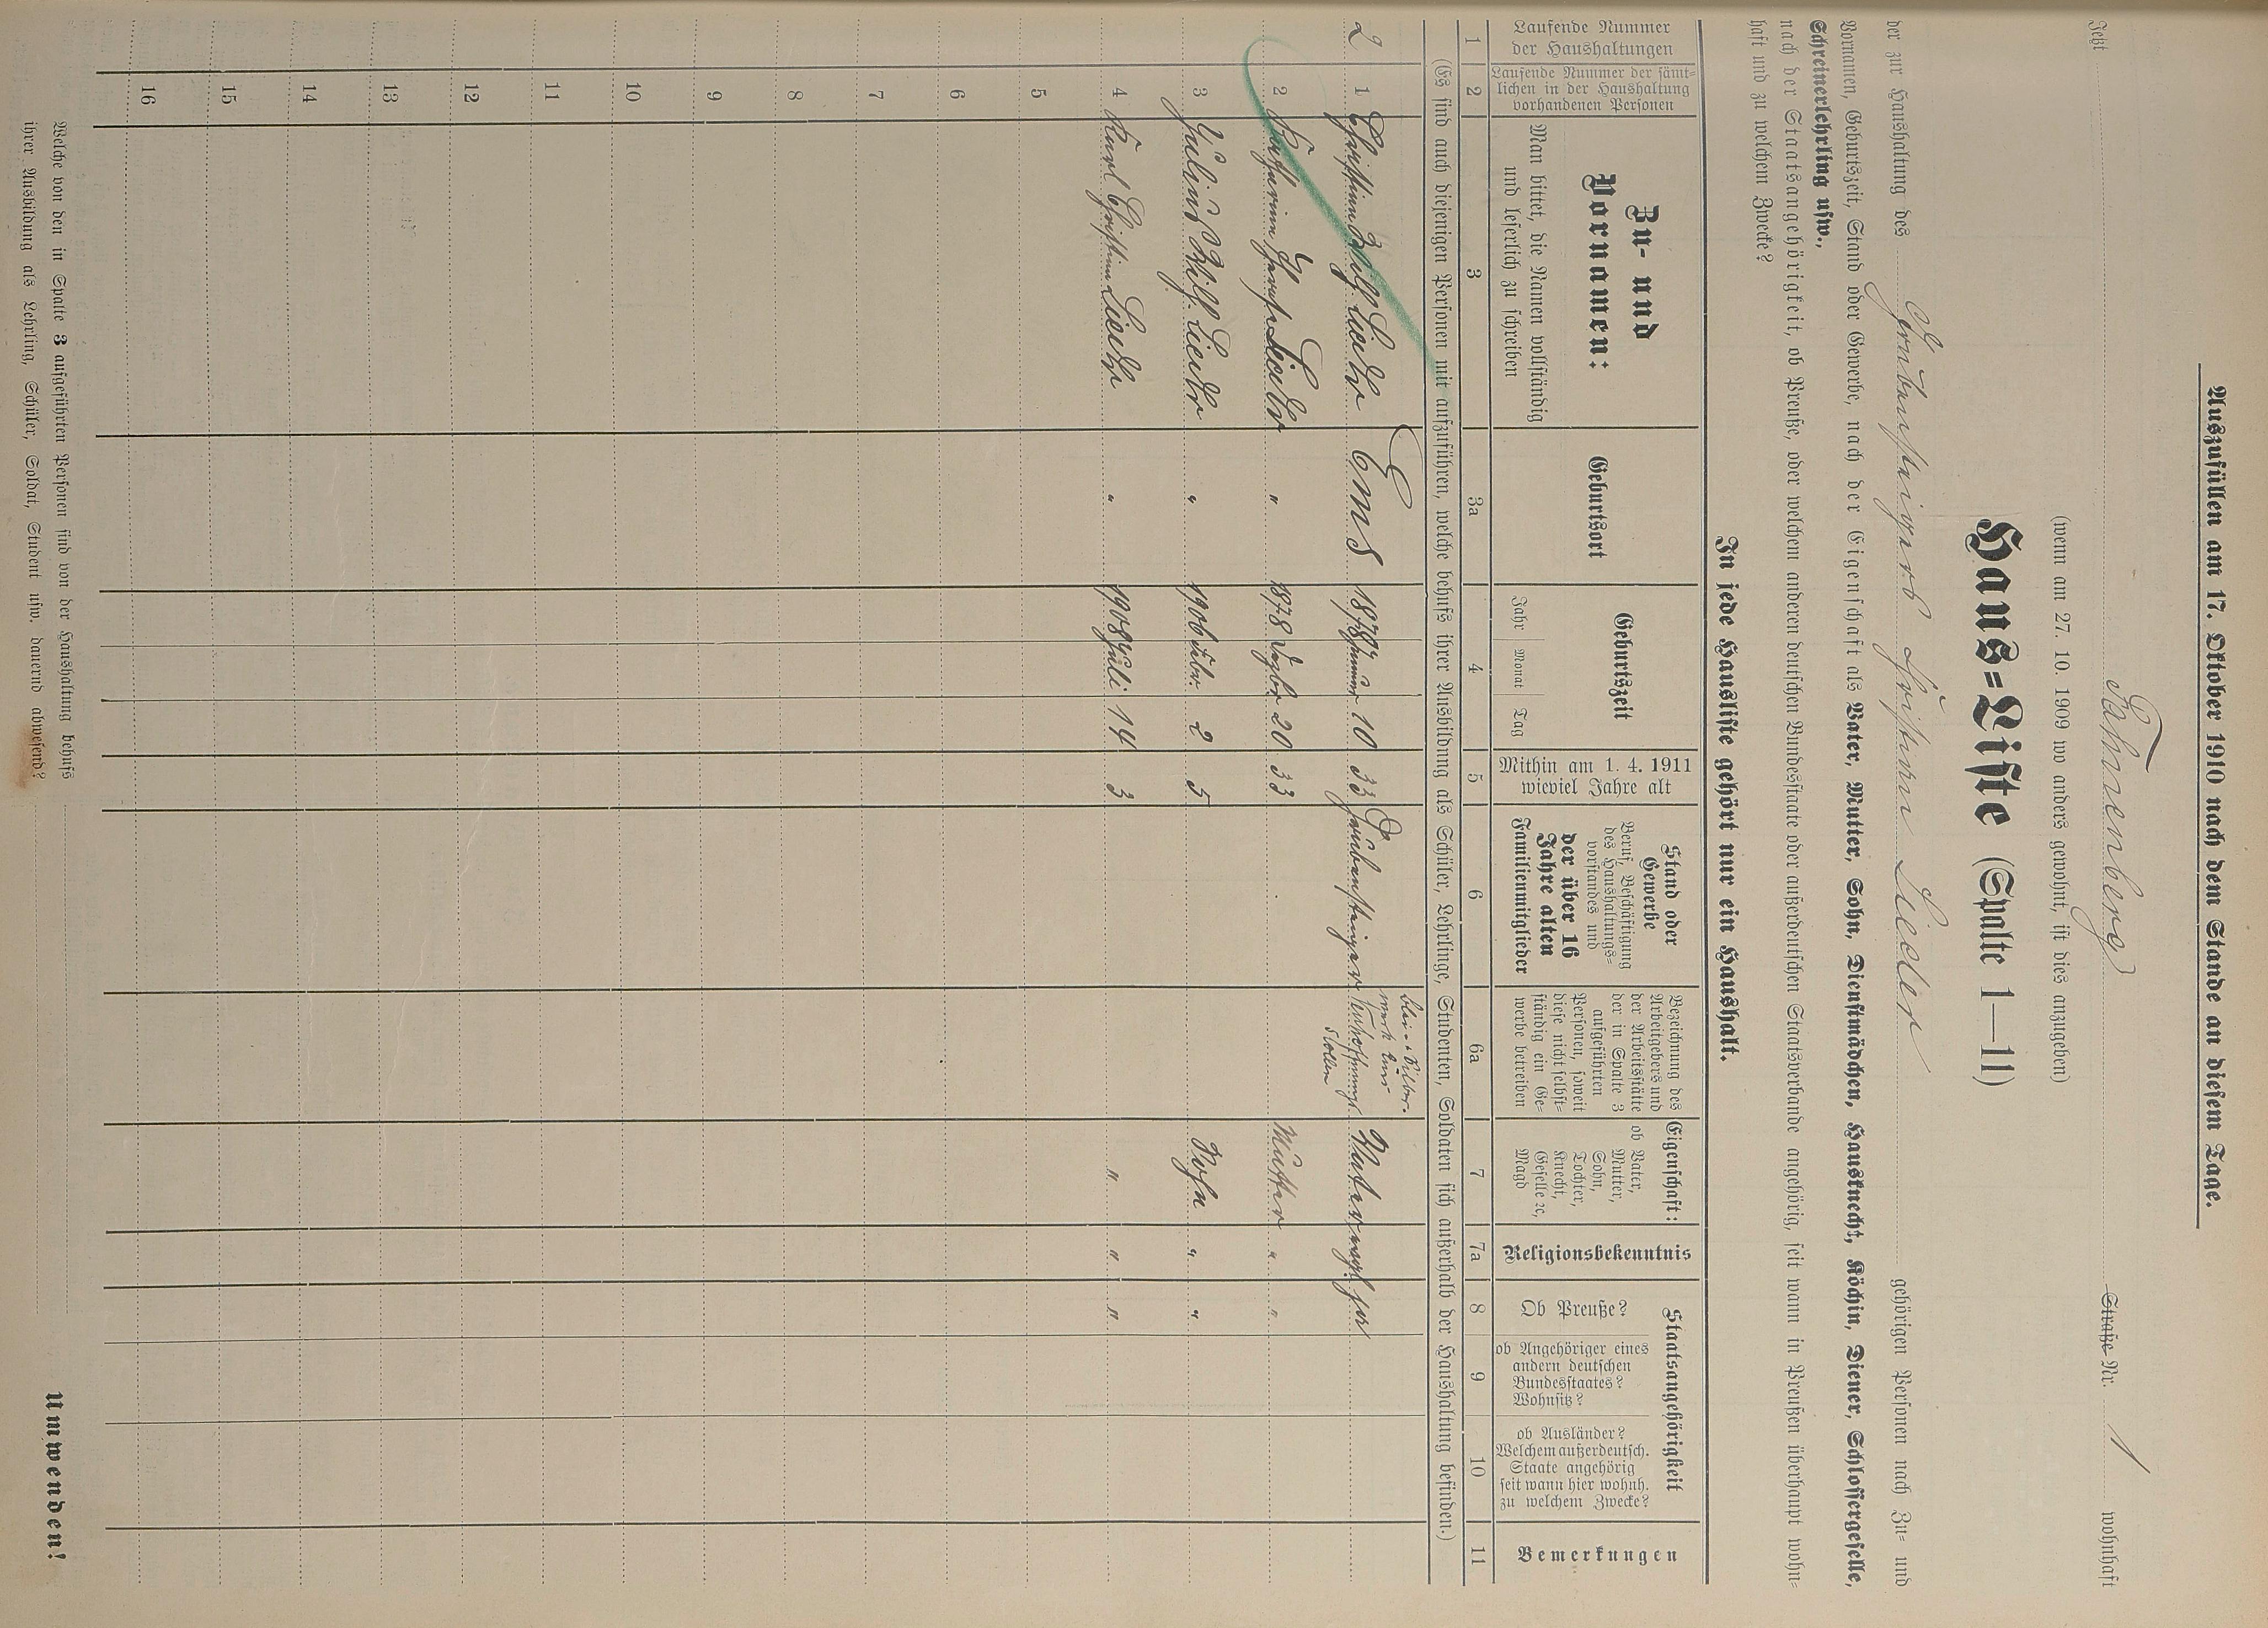 Auszufüllen am 17. Oktober 1910 nach dem Stande an diesem Tage.
Jetzt Fahnenberg Straße Nr. 1 wohnhaft
(wenn am 27. 10. 1909 wo anders gewohnt, ist dies anzugeben)
Haus=Liste (Spalte 1—11)
der zur Haushaltung des Grubensteigers Christian Lieder gehörigen Personen nach Zu= und
Vornamen, Geburtszeit, Stand oder Gewerbe, nach der Eigenschaft als Vater, Mutter, Sohn, Dienstmädchen, Hausknecht, Köchin, Diener, Schlossergeselle,
Schreinerlehrling usw.,
nach der Staatsangehörigkeit, ob Preuße, oder welchem anderen deutschen Bundesstaate oder außerdeutschen Staatsverbande angehörig, seit wann in Preußen überhaupt wohn=
haft und zu welchem Zwecke?
In jede Hausliste gehört nur ein Haushalt.
Laufende Nummer
der Haushaltungen
Laufende Nummer der sämt=
lichen in der Haushaltung
vorhandenen Personen
Zu- und
Vornamen:
Man bittet, die Namen vollständig
und leserlich zu schreiben
Geburtsort
Geburtszeit
Jahr Monat Tag
Mithin am 1. 4. 1911
wieviel Jahre alt
Stand oder
Gewerbe
Beruf, Beschäftigung
des Haushaltungs=
vorstandes und
der über 16
Jahre alten
Familienmitglieder
Bezeichnung des
Arbeitgebers und
der Arbeitsstätte
der in Spalte 3
aufgeführten
Personen, soweit
diese nicht selbst=
ständig ein Ge=
werbe betreiben
Eigenschaft:
ob Vater,
Mutter,
Sohn,
Tochter,
Knecht,
Geselle ꝛc,
Magd
Religionsbekenntnis
Staatsangehörigkeit
Ob Preuße?
ob Angehöriger eines
andern deutschen
Bundesstaates?
Wohnsitz?
ob Ausländer?
Welchem außerdeutsch.
Staate angehörig
seit wann hier wohnh.
zu welchem Zwecke?
Bemerkungen
1 2 3 3a 4 5 6 6a 7 7a 8 9 10 11
(Es sind auch diejenigen Personen mit aufzuführen, welche behufs ihrer Ausbildung als Schüler, Lehrlinge, Studenten, Soldaten sich außerhalb der Haushaltung befinden.)
Blei- & Silber-
werk Ems
2 1 Christian Lieder Ems 1878 Januar 10 33 Grubensteiger Neuhoffnungs Vater evgl ja
Stollen
2 Lieder " 1878 20 33 Mutter " "
3 Julius Wilh. Lieder " 1906 Febr. 2 5 Sohn " "
4 Karl Christian Lieder " 1908 Juli 14 3 " " "
5
6
7
8
9
10
11
12
13
14
15
16
Welche von den in Spalte 3 aufgeführten Personen sind von der Haushaltung behufs
ihrer Ausbildung als Lehrling, Schüler, Soldat, Student usw. dauernd abwesend?
Umwenden!